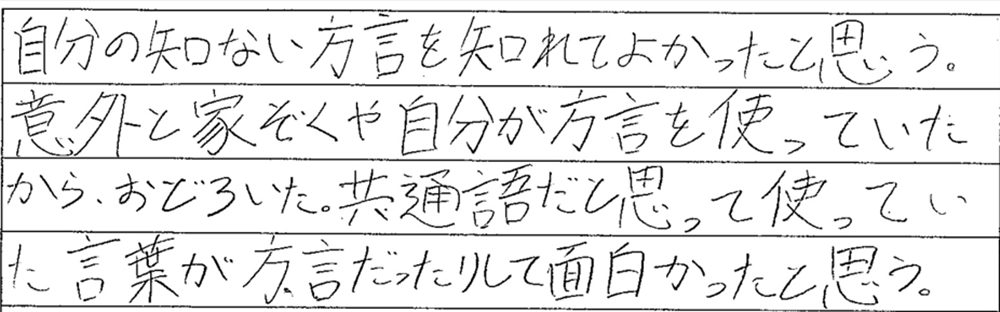 自分の知ない方言を知れてよかったと思う。
意外と家ぞくや自分が方言を使っていた
から、おどろいた。共通語だと思って使ってい
た言葉が方言だったりして面白かったと思う。